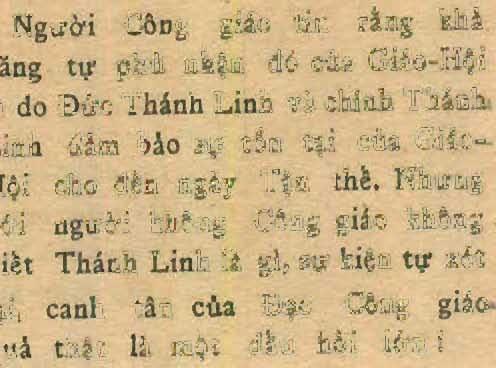 Người Công giáo tin rằng khả
ăng tự phủ nhận đó của Giáo-Hội
do Đức Thánh Linh và chính Thánh
inh đảm bảo sự tồn tại của Giáo-
ội cho đến ngày Tận thế. Nhưng
ới người không Công giáo không
iết Thánh Linh là gì, sự kiện tự xét
canh tân của Đạo Công giáo
uả thật là một dấu hỏi lớn !